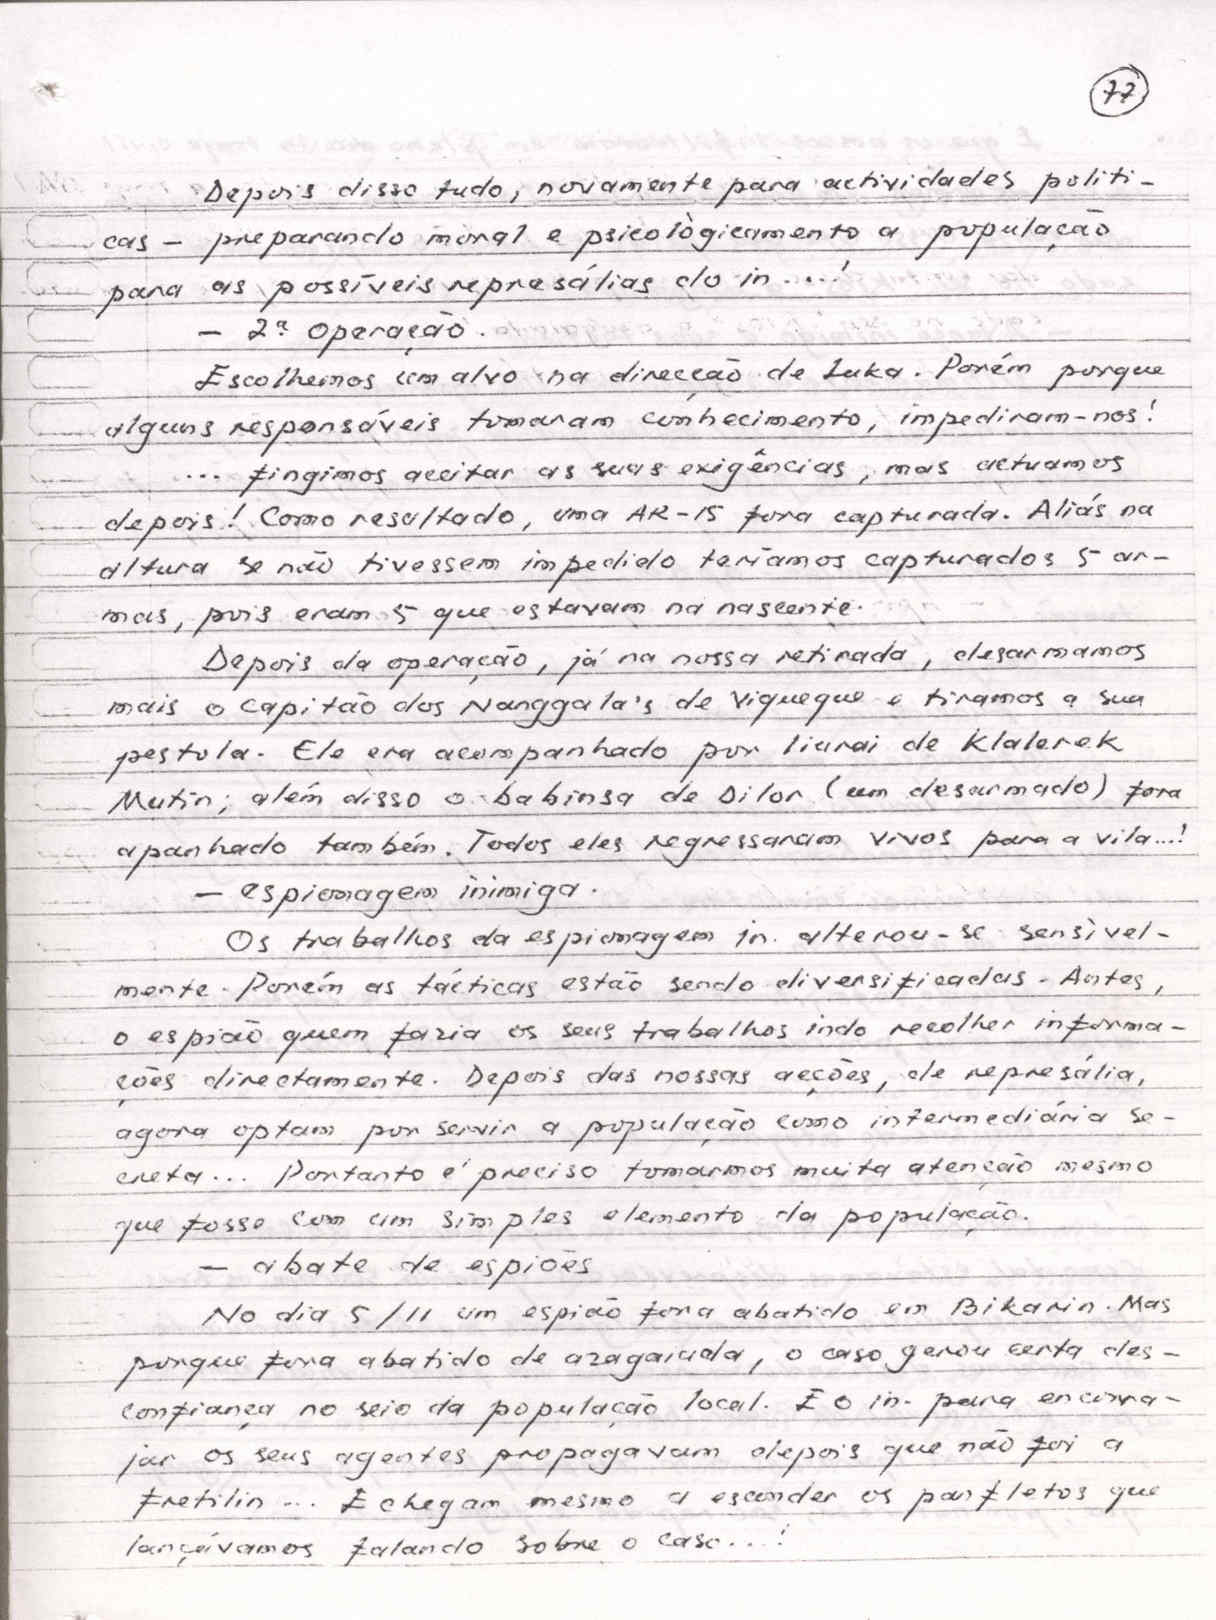 77
Depois disso tudo, novamente para actividades politi-
cas - preparando moral e psicològicamento a população
para as possíveis represálias do in....!
- 2ª operação.
Escolhemos um alvo na direcção de Luka. Porém porque
alguns responsáveis tomaram conhecimento, impediram-nos!
... fingimos aceitar as suas exigências, mas actuamos
depois! Como resultado, uma AR-15 fora capturada. Aliás na
altura se não tivessem impedido teríamos capturados 5 ar-
mas, pois eram 5 que estavam na nascente.
Depois da operação, já na nossa retirada, desarmamos
mais o capitão dos Nanggala's de Viqueque e tiramos a sua
pestola. Ele era acompanhado por liurai de Klalerek
Mutin; além disso o babinsa de Dilor (um desarmado) fora
apanhado também. Todos eles regressaram vivos para a vila...!
- espionagem inimiga.
Os trabalhos da espionagem in. alterou-se sensìvel-
mente. Porém as tácticas estão sendo diversificadas. Antes,
o espião quem fazia os seus trabalhos indo recolher informa-
ções directamente. Depois das nossas acções, de represália,
agora optam por servir a população como intermediária se-
creta... Portanto é preciso tomarmos muita atenção mesmo
que fosse com um simples elemento da população.
- abate de espiões
No dia 5/11 um espião fora abatido em Bikarin. Mas
porque fora abatido de azagaiada, o caso gerou certa des-
confiança no seio da população local. E o in. para encora-
jar os seus agentes propagavam depois que não foi a
Fretilin... E chegam mesmo a esconder os panfletos que
lançávamos falando sobre o caso...!